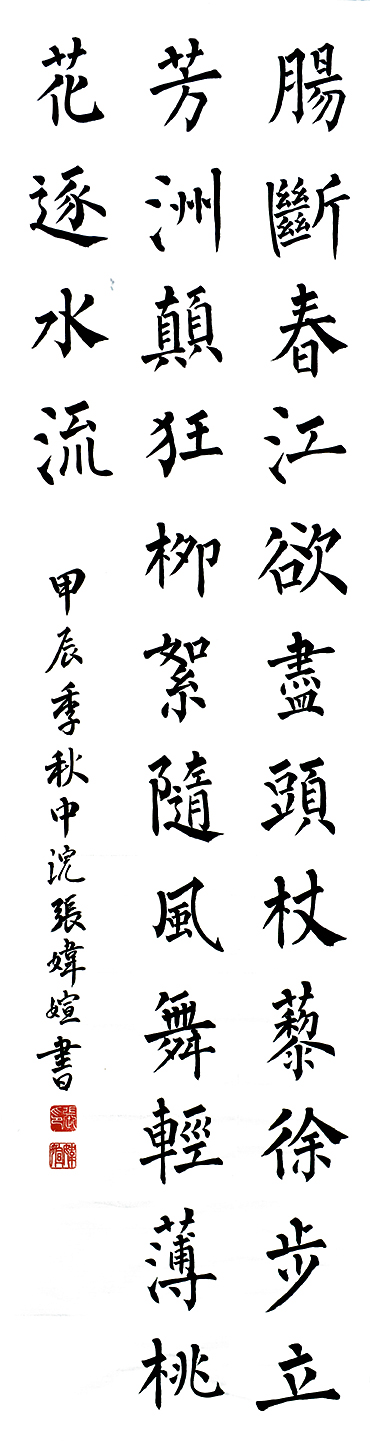 腸斷春江欲盡頭杖藜徐步立
芳洲顛狂柳絮隨風舞輕薄桃
花逐水流
甲辰季秋中浣張媁媗書